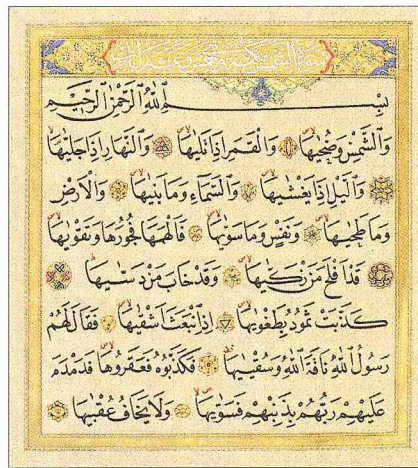 سورة الشمس مكية وهي خمس وعشر آيات
بسم الله الرحمن الرحيم
وَالشَّمْسِ وَضُحٰيهَا وَالْقَمَرِ اِذَا تَلٰيهَا وَالنَّهَارِ اِذَا جَلّٰيهَا
وَالَّيْلِ اِذَا يَغْشٰيهَا وَالسَّمَاءِ وَمَا بَنٰيهَا وَالْاَرْضِ
وَمَا طَحٰيهَا وَنَفْسٍ وَمَا سَوّٰيهَا فَاَلْهَمَهَا فُجُورَهَا وَتَقْوٰيهَا
قَدْ اَفْلَحَ مَنْ زَكّٰيهَا وَقَدْ خَابَ مَنْ دَسّٰيهَا
كَذَّبَتْ ثَمُودُ بِطَغْوٰيهَا اِذِ انْبَعَثَ اَشْقٰيهَا فَقَالَ لَهُمْ
رَسُولُ اللّٰهِ نَاقَةَ اللّٰهِ وَسُقْيٰيهَا فَكَذَّبُوهُ فَعَقَرُوهَا فَدَمْدَمَ
عَلَيْهِمْ رَبُّهُمْ بِذَنْبِهِمْ فَسَوّٰيهَا وَلَا يَخَافُ عُقْبٰيهَا